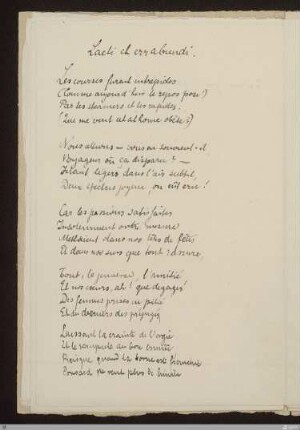 Laeti et errabundi.
Les courses furent intrépides
(Comme aujourd'hui le repos pèse!)
Par les steamers et les rapides.
(Que me veut cet at home obèse?)
Nous allions, — vous en souvient-il,
Voyageur où ça disparu? —
Filant légers dans l'air subtil,
Deux spectres joyeux, on eût cru!
Car les passions satisfaites
Insolemment outre mesure
Mettaient dans nos têtes des fêtes
Et dans nos sens, que tout rassure,
Tout, la jeunesse, l'amitié,
Et nos cœurs, ah! que dégagés
Des femmes prises en pitié
Et du dernier des préjugés,
Laissant la crainte de l'orgie
Et le scrupule au bon ermite,
Puisque quand la borne est franchie
Ponsard ne veut plus de limite.